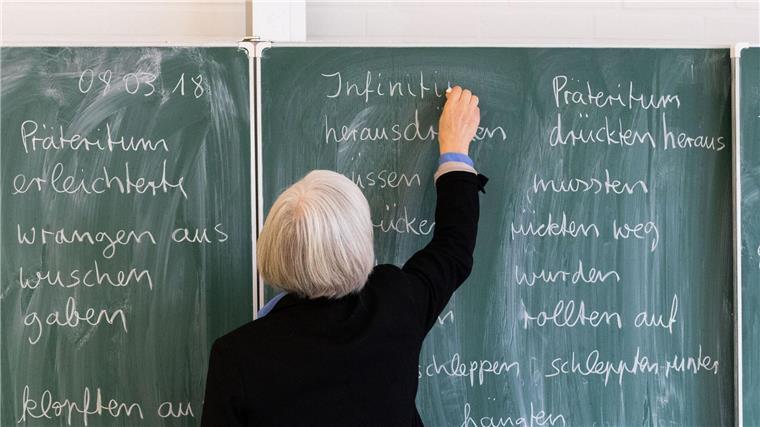 08.03.18
Präteritum
erleichterte
wrangen aus
wuschen
gaben
klopften
Infiniti
herausdrü
en
Präteritum
drückten heraus
mussten
rückten weg
wurden
rollten auf
schleppten runter
hängten